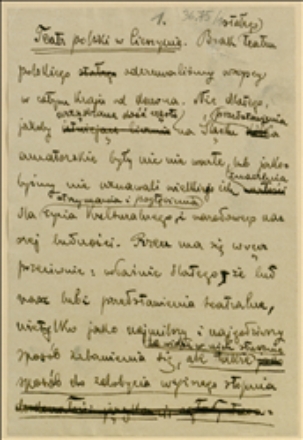 1. 36.75/ stałego)
Teatr polski w Cieszynie. Brak teatru
polskiego stałego odczuwaliśmy wszyscy
w całym kraju od dawna. Nie dlatego,
urządzane dość często (przedstawienia
jakoby na Śląsku
amatorskie były nic nie warte, lub jako-
znaczenia
byśmy nie uznawali wielkiego ich
utrzymania i
dla życia kulturalnego i narodowego na-
szej ludności. Rzecz ma się wręcz
przeciwnie: właśnie dlatego, że lud
nasz lubi przedstawienia teatralne,
nietylko jako najmilszy i najgodziwszy
sposób zabawienia się, ale także
sposób do zdobycia wyższego stopnia